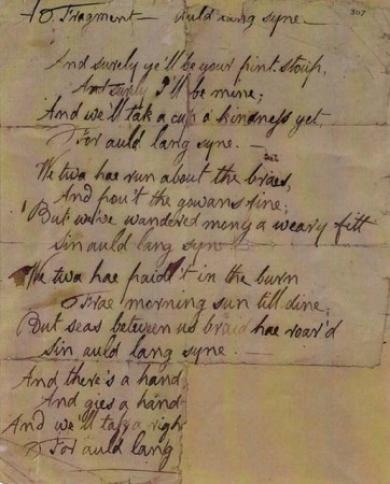 Fragment — Auld lang syne —
307
And surely ye'll be your pint-stoup,
And surely I'll be mine;
And we'll tak a cup o kindness yet,
For auld lang syne. —
We twa hae run about the braes,
And pou't the gowans fine;
But we've wandered mony a weary fitt
Sin auld lang syne
We twa hae paidl't in the burn
Frae morning sun till dine;
But seas between us braid hae roar'd
Sin auld lang syne. —
And there's a hand
And gies a hand
And we'll tak a righ
For auld lang